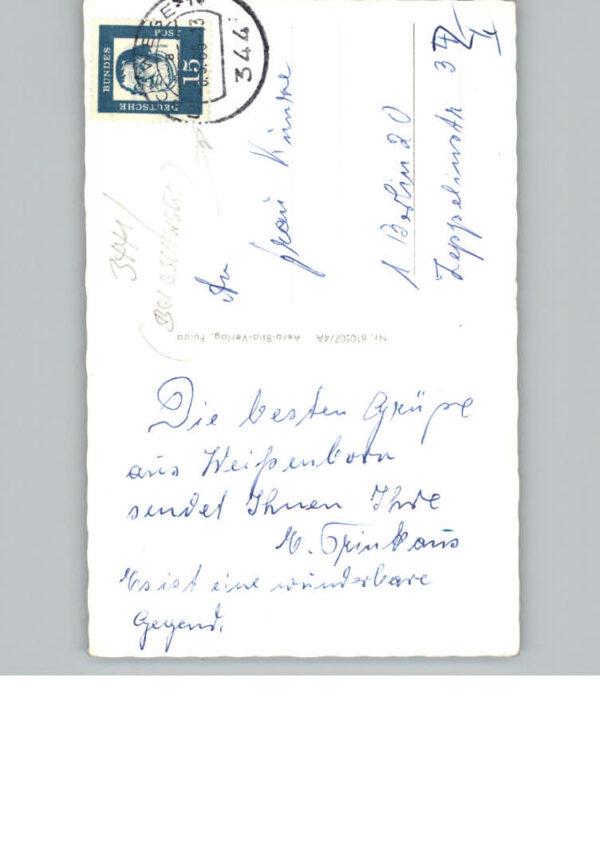 Die besten Grüße
aus Weißenborn
sendet Ihnen Ihre
E. Trinkaus
Es ist eine wunderbare
Gegend.
An
Frau
1 Berlin 20
Zeppelinstr 37
II
Nr. 610507/4A Aero-Bild-Verlag, Fulda
DEUTSCHE
BUNDES
15
344
3441